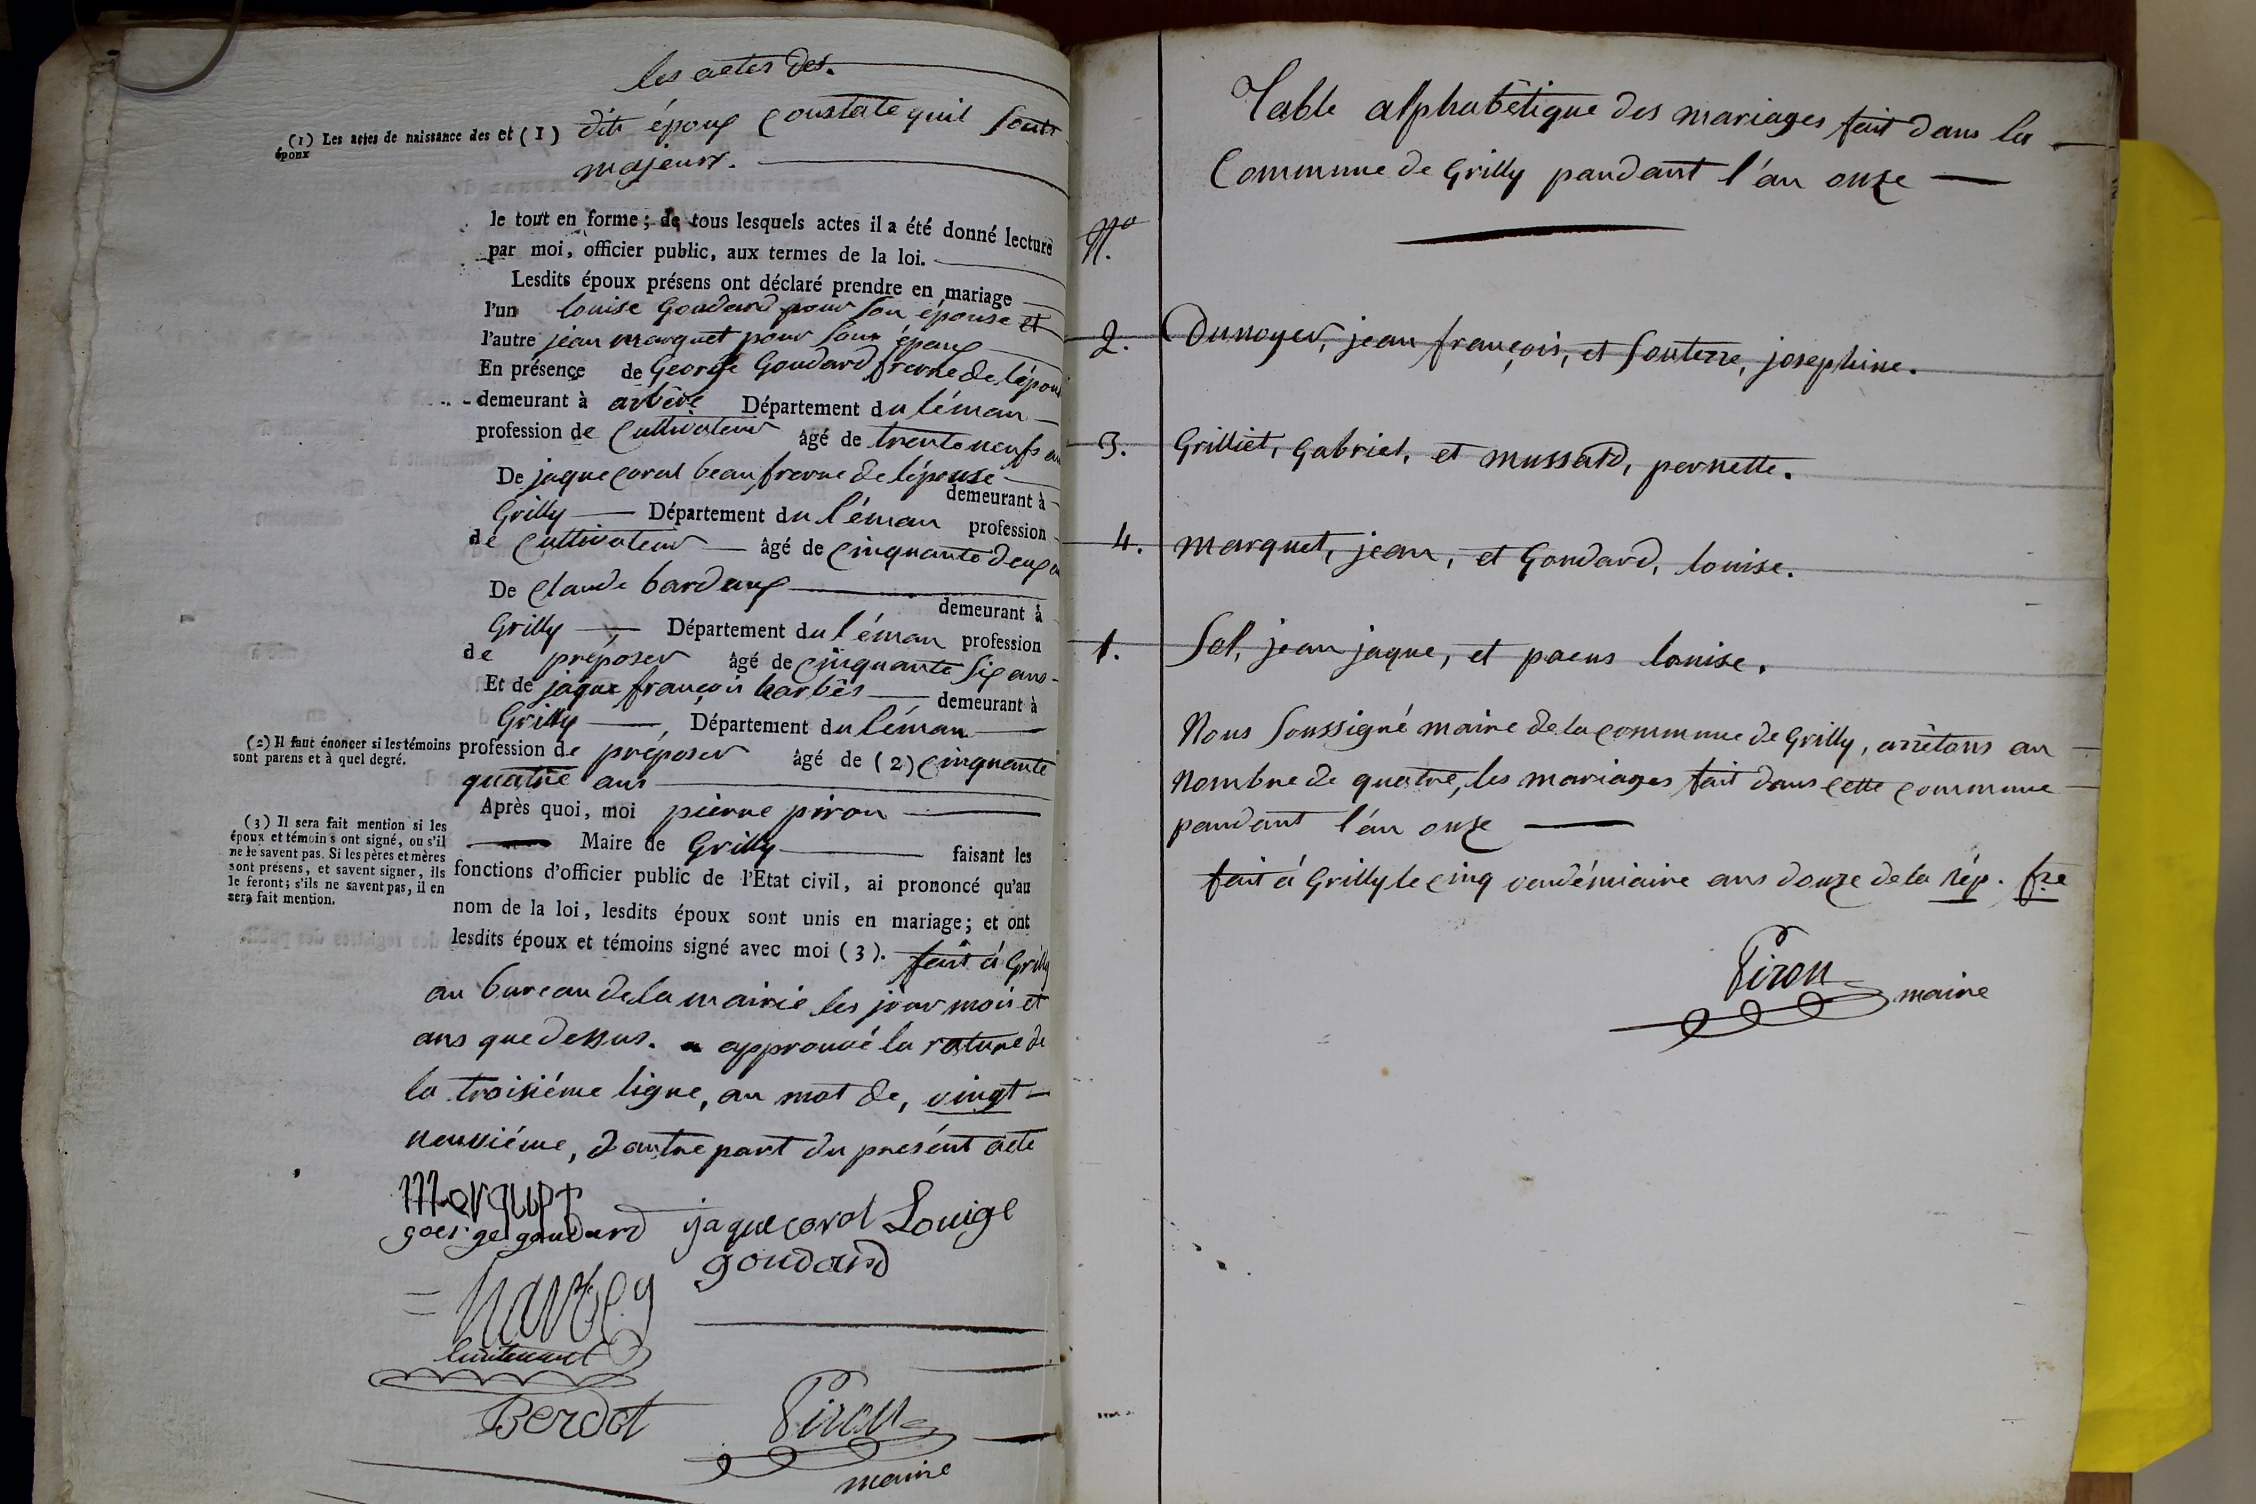 les actes des.
(1) Les actes de naissance des
époux
et (1) dits époux Constate quil sonts
majeurs.
le tout en forme ; de tous lesquels actes il a été donné lecture
par moi, officier public, aux termes de la loi.
Lesdits époux présens ont déclaré prendre en mariage
l'un louise Goudard pour son épouse et
l'autre jean marquet pour son époux
En présence de George Goudard frerre de lépouse
demeurant à arbère Département du léman
profession de Cultivateur âgé de trente neufs ans
De jaque Coral beau frerre de lépouse demeurant à
Grilly Département du l'éman profession
de Cultivateur âgé de Cinquante deux
De Claude bardeux demeurant à
Grilly Département du léman profession
de préposer âgé de Cinquante six ans
Et de jaque françois harbés demeurant à
Grilly Département du léman
(2) Il faut énoncer si les témoins
sont parens et à quel degré.
profession de préposer âgé de (2) Cinquante
quatre ans
Après quoi, moi pierre piron
Maire de Grilly faisant les
(3) Il sera fait mention si les
époux et témoins ont signé, ou s'il
ne le savent pas. Si les pères et mères
sont présens, et savent signer, ils
le feront ; s'ils ne savent pas, il en
sera fait mention.
fonctions d'officier public de l'Etat civil, ai prononcé qu'au
nom de la loi, lesdits époux sont unis en mariage ; et ont
lesdits époux et témoins signé avec moi (3). fait á Grilly
au bureau de la mairie les jour mois et
ans que dessus. approuvé la rature de
la troisiéme ligne, au mot de, vingt-
neuviéme, d'autre part du présént acte
Marquet
goerge goudard jaque corol Louige
goudard
harbey
lieutenant
Berdot
Piron
maire
Table alphabètique des mariages fait dans la
Commune de Grilly pandant l'án onze
No.
2. Dunoyer, jean françois, et Souterre, josephine.
3. Grilliet, Gabriel, et mussard, pernette.
4. Marquet, jean, et Goudard, louise.
1. Sol, jean jaque, et paeus louise.
Nous Soussigné maire de la Commune de Grilly, arrètons au
Nombre de quatre, les mariages fait dans Cette Commune
pandant l'án onze
fait á Grilly le Cinq vendémiaire ans douze de la rép. fre
Piron
maire